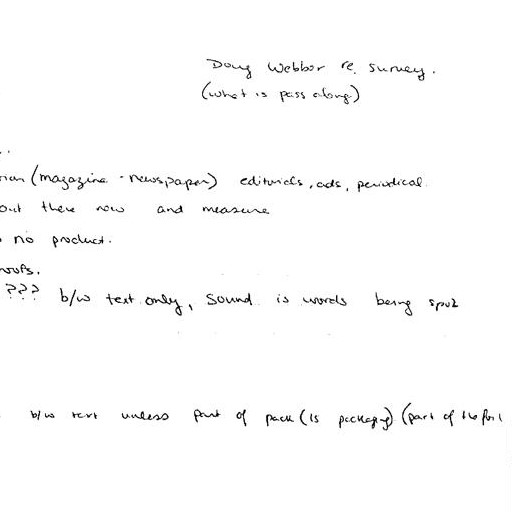 Doug Webber re. survey.
(what is pass along)
(magazine - newspaper) editorials, ads, periodical
out there now and measure
no product.
???
b/w text only, sound is words being
b/w text unless part of pack (is packaging) (part of the